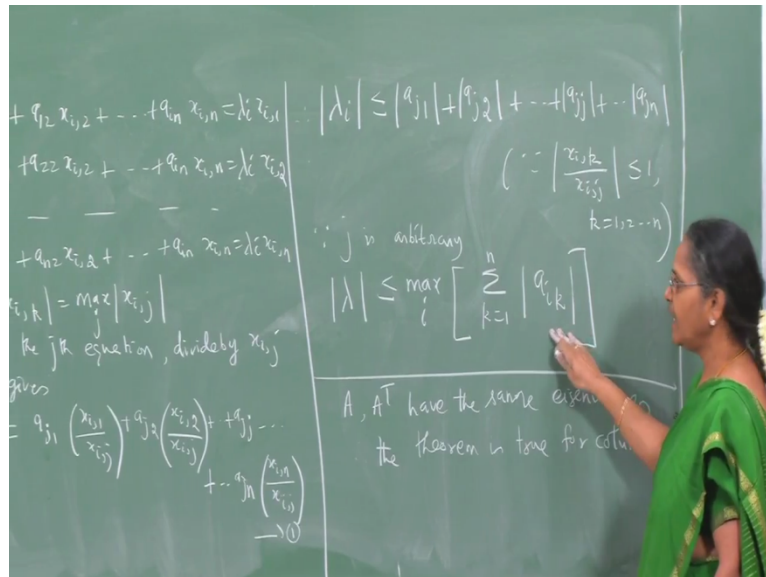 + a12 xi,2 + --- + ain xi,n = λi xi,1
+ a22 xi,2 + --- + ain xi,n = λi xi,2
— — — -
+ an2 xi,2 + --- + ain xi,n = λi xi,n
xi,k| = max j |xi,j|
the jth equation, divide by xi,j
gives
= aj1 (xi,1/xi,j) + aj2 (xi,2/xi,j) + + ajj ...
+ -- ajn (xi,n/xi,j)
→ ①
∴ |λi| ≤ |aj1| + |aj2| + --- + |ajj| + -- |ajn|
(∵ |xi,k/xi,j| ≤ 1,
k=1,2--n)
∵ j is arbitrary
|λ| ≤ max i [ n Σ k=1 |aik| ]
A, AT have the same
the theorem is true for